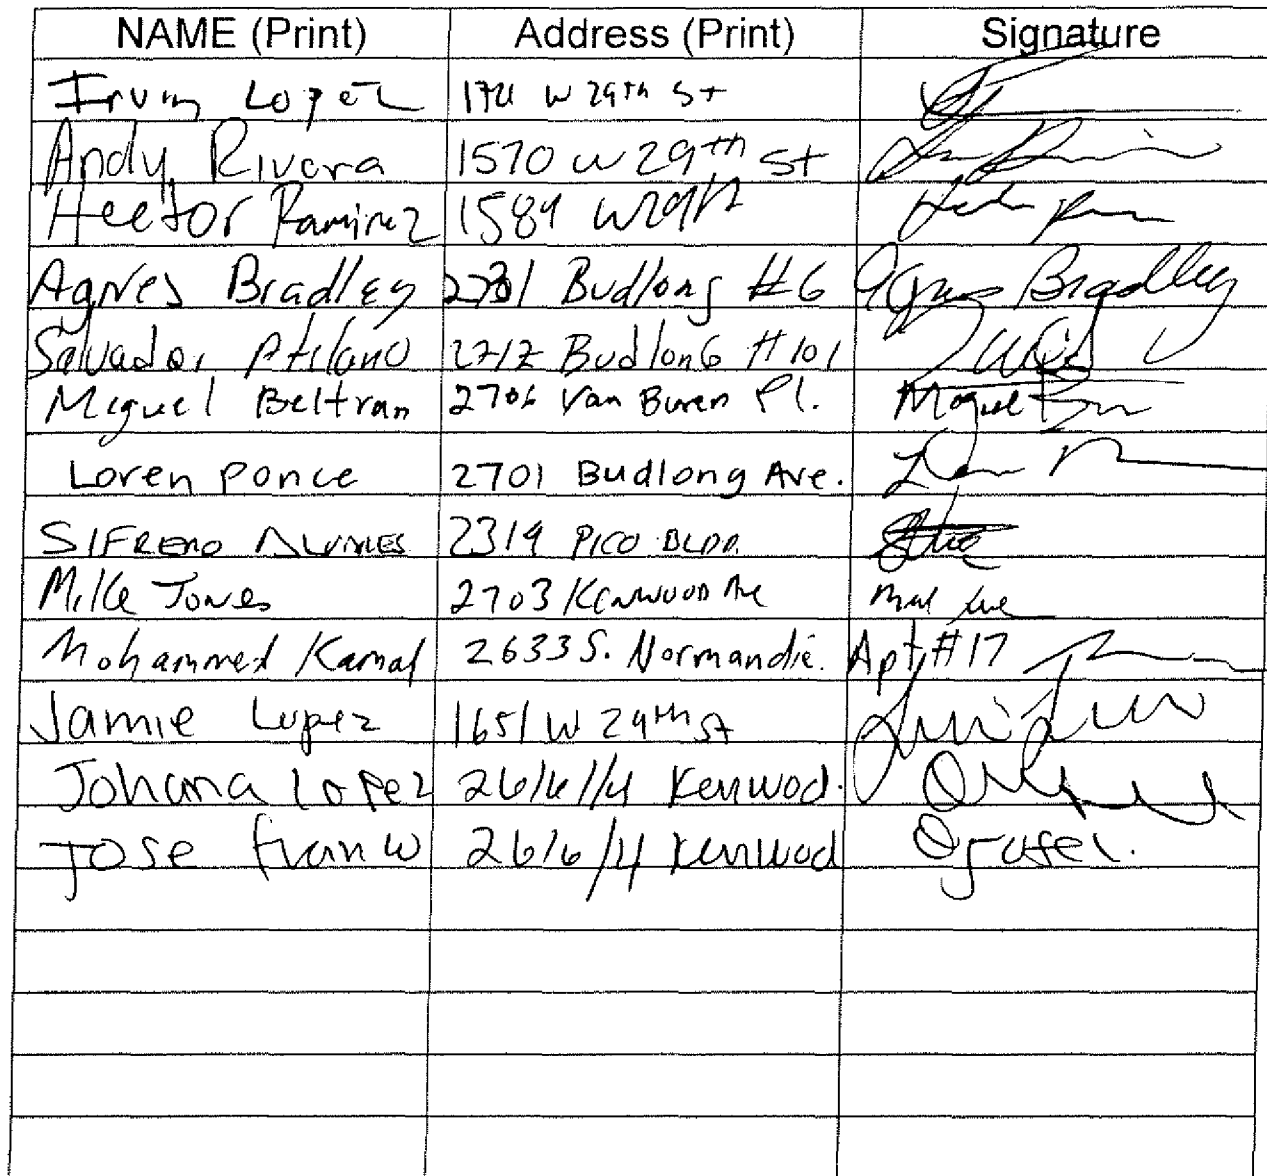 NAME (Print) Address (Print) Signature
Irvin Lopez 1721 W 29th St
Andy Rivera 1570 W 29th St
Hector Ramirez 1589 W29th
Agnes Bradley 2731 Budlong #6 Agnes Bradley
Salvador Atilano 2712 Budlong #101
Miguel Beltran 2706 Van Buren Pl. Miguel
Loren Ponce 2701 Budlong Ave.
SIFREDO 2319 PICO BLDD.
Mike Jones 2703 Kenwood Ave
Mohammed Kamal 2633 S. Normandie. Apt #17
Jamie Lopez 1651 W 29th St
Johana Lopez 2616 1/4 Kenwod.
Jose Franco 2616 1/4 Kenwod